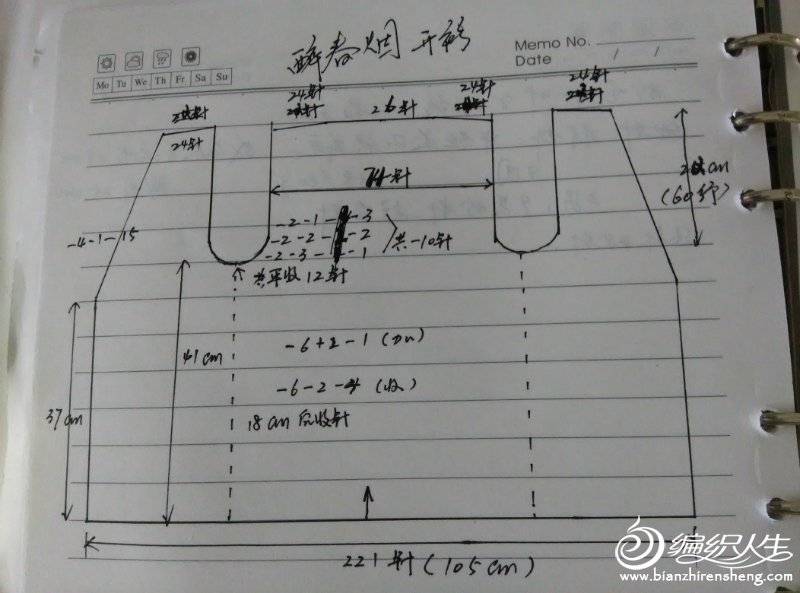 醉春烟 开衫
Memo No.
Date / /
Mo Tu We Th Fr Sa Su
24针
24针
24针
24针
26针
(60行)
-4-1-15
-2-1-3
-2-2-2
-2-3-1
共-10针
共平收12针
41cm
37cm
-6+2-1 (加)
-6-2-4 (收)
18cm后收针
221针(105cm)
编织人生
www.bianzhirensheng.com